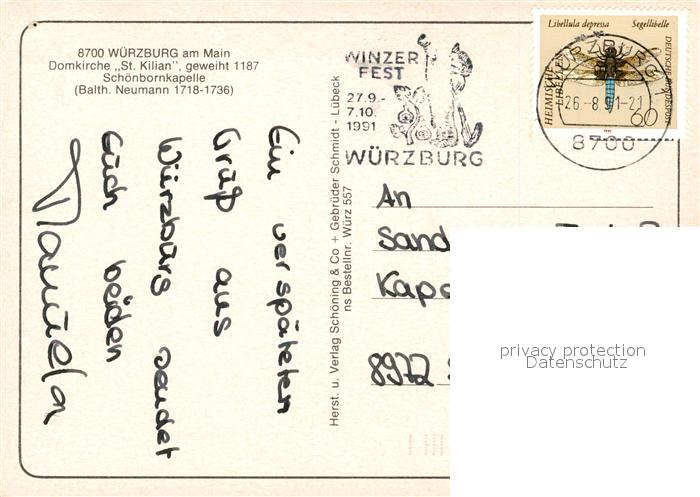 8700 WÜRZBURG am Main
Domkirche „St. Kilian", geweiht 1187
Schönbornkapelle
(Balth. Neumann 1718-1736)
Ein verspäteten
Gruß aus
Würzburg sendet
Euch beiden
Manuela
Herst. u. Verlag Schöning & Co + Gebrüder Schmidt - Lübeck
ns Bestellnr. Würz 557
WINZER
FEST
27.9.-
7.10.
1991
WÜRZBURG
Libellula depressa Segellibelle
HEIMISCHE LIBELLEN
DEUTSCHE BUNDESPOST
60
WÜRZBURG 1
26.-8.91-21
8700
An
Sand
Kap
8972
privacy protection
Datenschutz